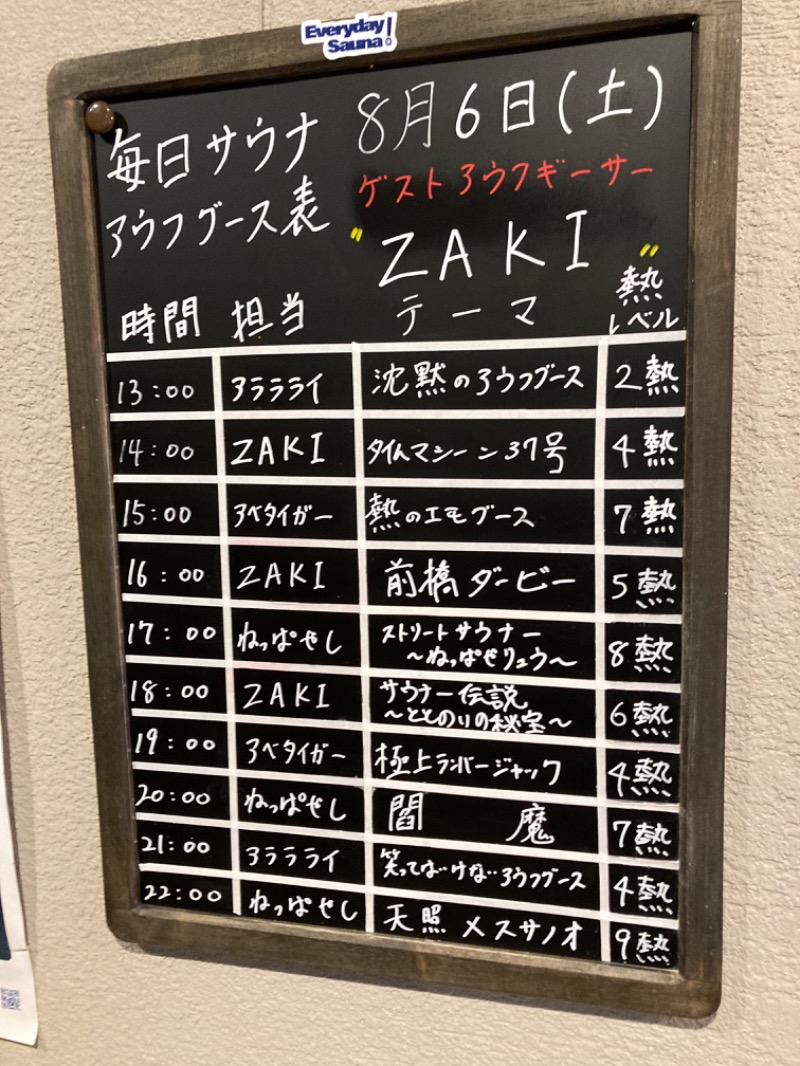 Everyday
Sauna!
毎日サウナ 8月6日(土)
アウフグース表 ゲストアウフギーサー
"ZAKI"
時間 担当 テーマ 熱レベル
13:00 アララライ 沈黙のアウフグース 2熱
14:00 ZAKI タイムマシーン37号 4熱
15:00 アベタイガー 熱のエモグース 7熱
16:00 ZAKI 前橋ダービー 5熱
17:00 ねっぱせし ストリートサウナー 8熱
～ねっぱせリュウ～
18:00 ZAKI サウナー伝説 6熱
～ととのりの秘宝～
19:00 アベタイガー 極上ランバージャック 4熱
20:00 ねっぱせし 閻魔 7熱
21:00 アララライ 笑ってはいけないアウフグース 4熱
22:00 ねっぱせし 天照メスサノオ 9熱